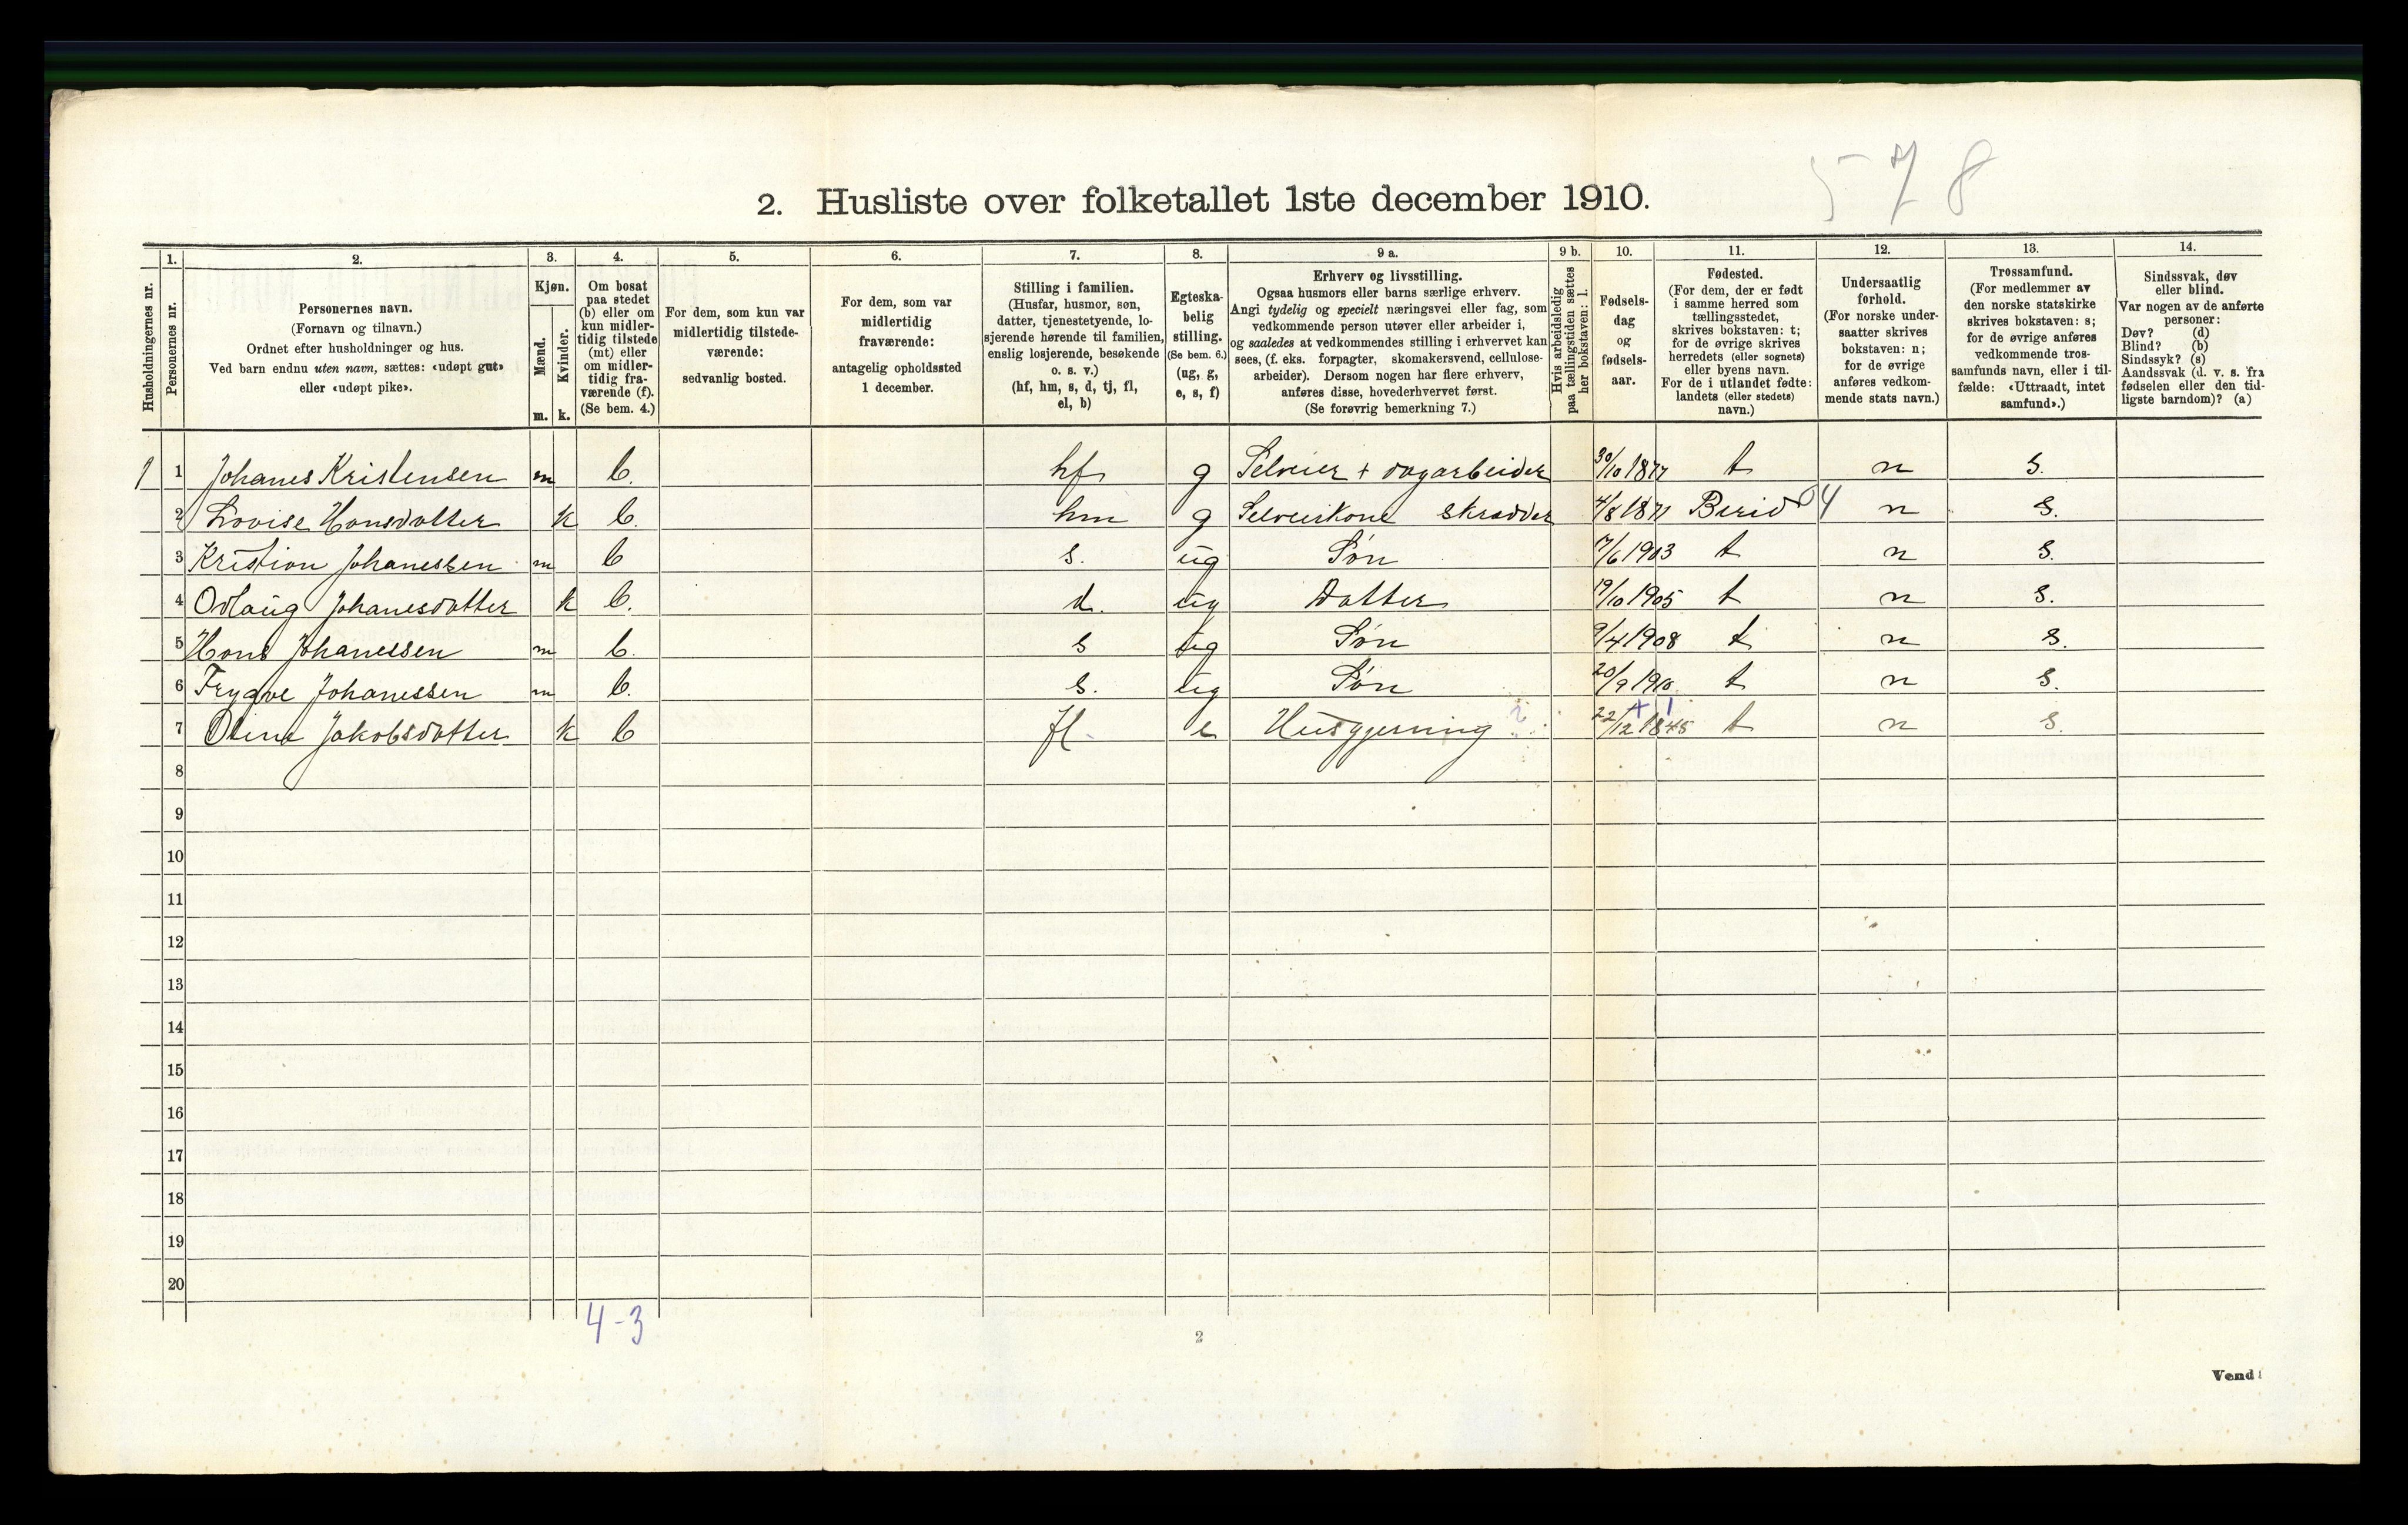 578
2. Husliste over folketallet 1ste december 1910.
Husholdningernes nr.
1. Personernes nr.
2. Personernes navn.
(Fornavn og tilnavn.)
Ordnet efter husholdninger og hus.
Ved barn endnu uten navn, sættes: «udøpt gut»
eller «udøpt pike».
3. Kjøn.
Mænd. m.
Kvinder. k.
4. Om bosat
paa stedet
(b) eller om
kun midler-
tidig tilstede
(mt) eller
om midler-
tidig fra-
værende (f).
(Se bem. 4.)
5. For dem, som kun var
midlertidig tilstede-
værende:
sedvanlig bosted.
6. For dem, som var
midlertidig
fraværende:
antagelig opholdssted
1 december.
7. Stilling i familien.
(Husfar, husmor, søn,
datter, tjenestetyende, lo-
sjerende hørende til familien,
enslig losjerende, besøkende
o. s. v.)
(hf, hm, s, d, tj, fl,
el, b)
8. Egteska-
belig
stilling.
(Se bem. 6.)
(ug, g,
e, s, f)
9 a. Erhverv og livsstilling.
Ogsaa husmors eller barns særlige erhverv.
Angi tydelig og specielt næringsvei eller fag, som
vedkommende person utøver eller arbeider i,
og saaledes at vedkommendes stilling i erhvervet kan
sees, (f. eks. forpagter, skomakersvend, cellulose-
arbeider). Dersom nogen har flere erhverv,
anføres disse, hovederhvervet først.
(Se forøvrig bemerkning 7.)
9 b. Hvis arbeidsledig
paa tællingstiden sættes
her bokstaven: l.
10. Fødsels-
dag
og
fødsels-
aar.
11. Fødested.
(For dem, der er født
i samme herred som
tællingsstedet,
skrives bokstaven: t;
for de øvrige skrives
herredets (eller sognets)
eller byens navn.
For de i utlandet fødte:
landets (eller stedets)
navn.)
12. Undersaatlig
forhold.
(For norske under-
saatter skrives
bokstaven: n;
for de øvrige
anføres vedkom-
mende stats navn.)
13. Trossamfund.
(For medlemmer av
den norske statskirke
skrives bokstaven: s;
for de øvrige anføres
vedkommende tros-
samfunds navn, eller i til-
fælde: «Uttraadt, intet
samfund».)
14. Sindssvak, døv
eller blind.
Var nogen av de anførte
personer:
Døv? (d)
Blind? (b)
Sindssyk? (s)
Aandssvak (d. v. s. fra
fødselen eller den tid-
ligste barndom)? (a)
1 1 Johanes Kristensen m b. hf g Selveier + dagarbeider 30/10 1877 t n s.
2 Lovise Hansdatter k b. hm g Selveierkone skrædder 4/8 1871 Berid 04 n s.
3 Kristian Johanessen m b s. ug Søn 7/6 1903 t n s.
4 Odlaug Johanesdatter k b. d. ug Datter 19/10 1905 t n s.
5 Hans Johanessen m b. s ug Søn 9/4 1908 t n s.
6 Trygve Johanessen m b. s. ug Søn 20/9 1910 t n s.
7 Oline Jakobsdatter k b fl e Husgjerning 22/12 1845 t n s.
8
9
10
11
12
13
14
15
16
17
18
19
20
4-3
2
Vend!